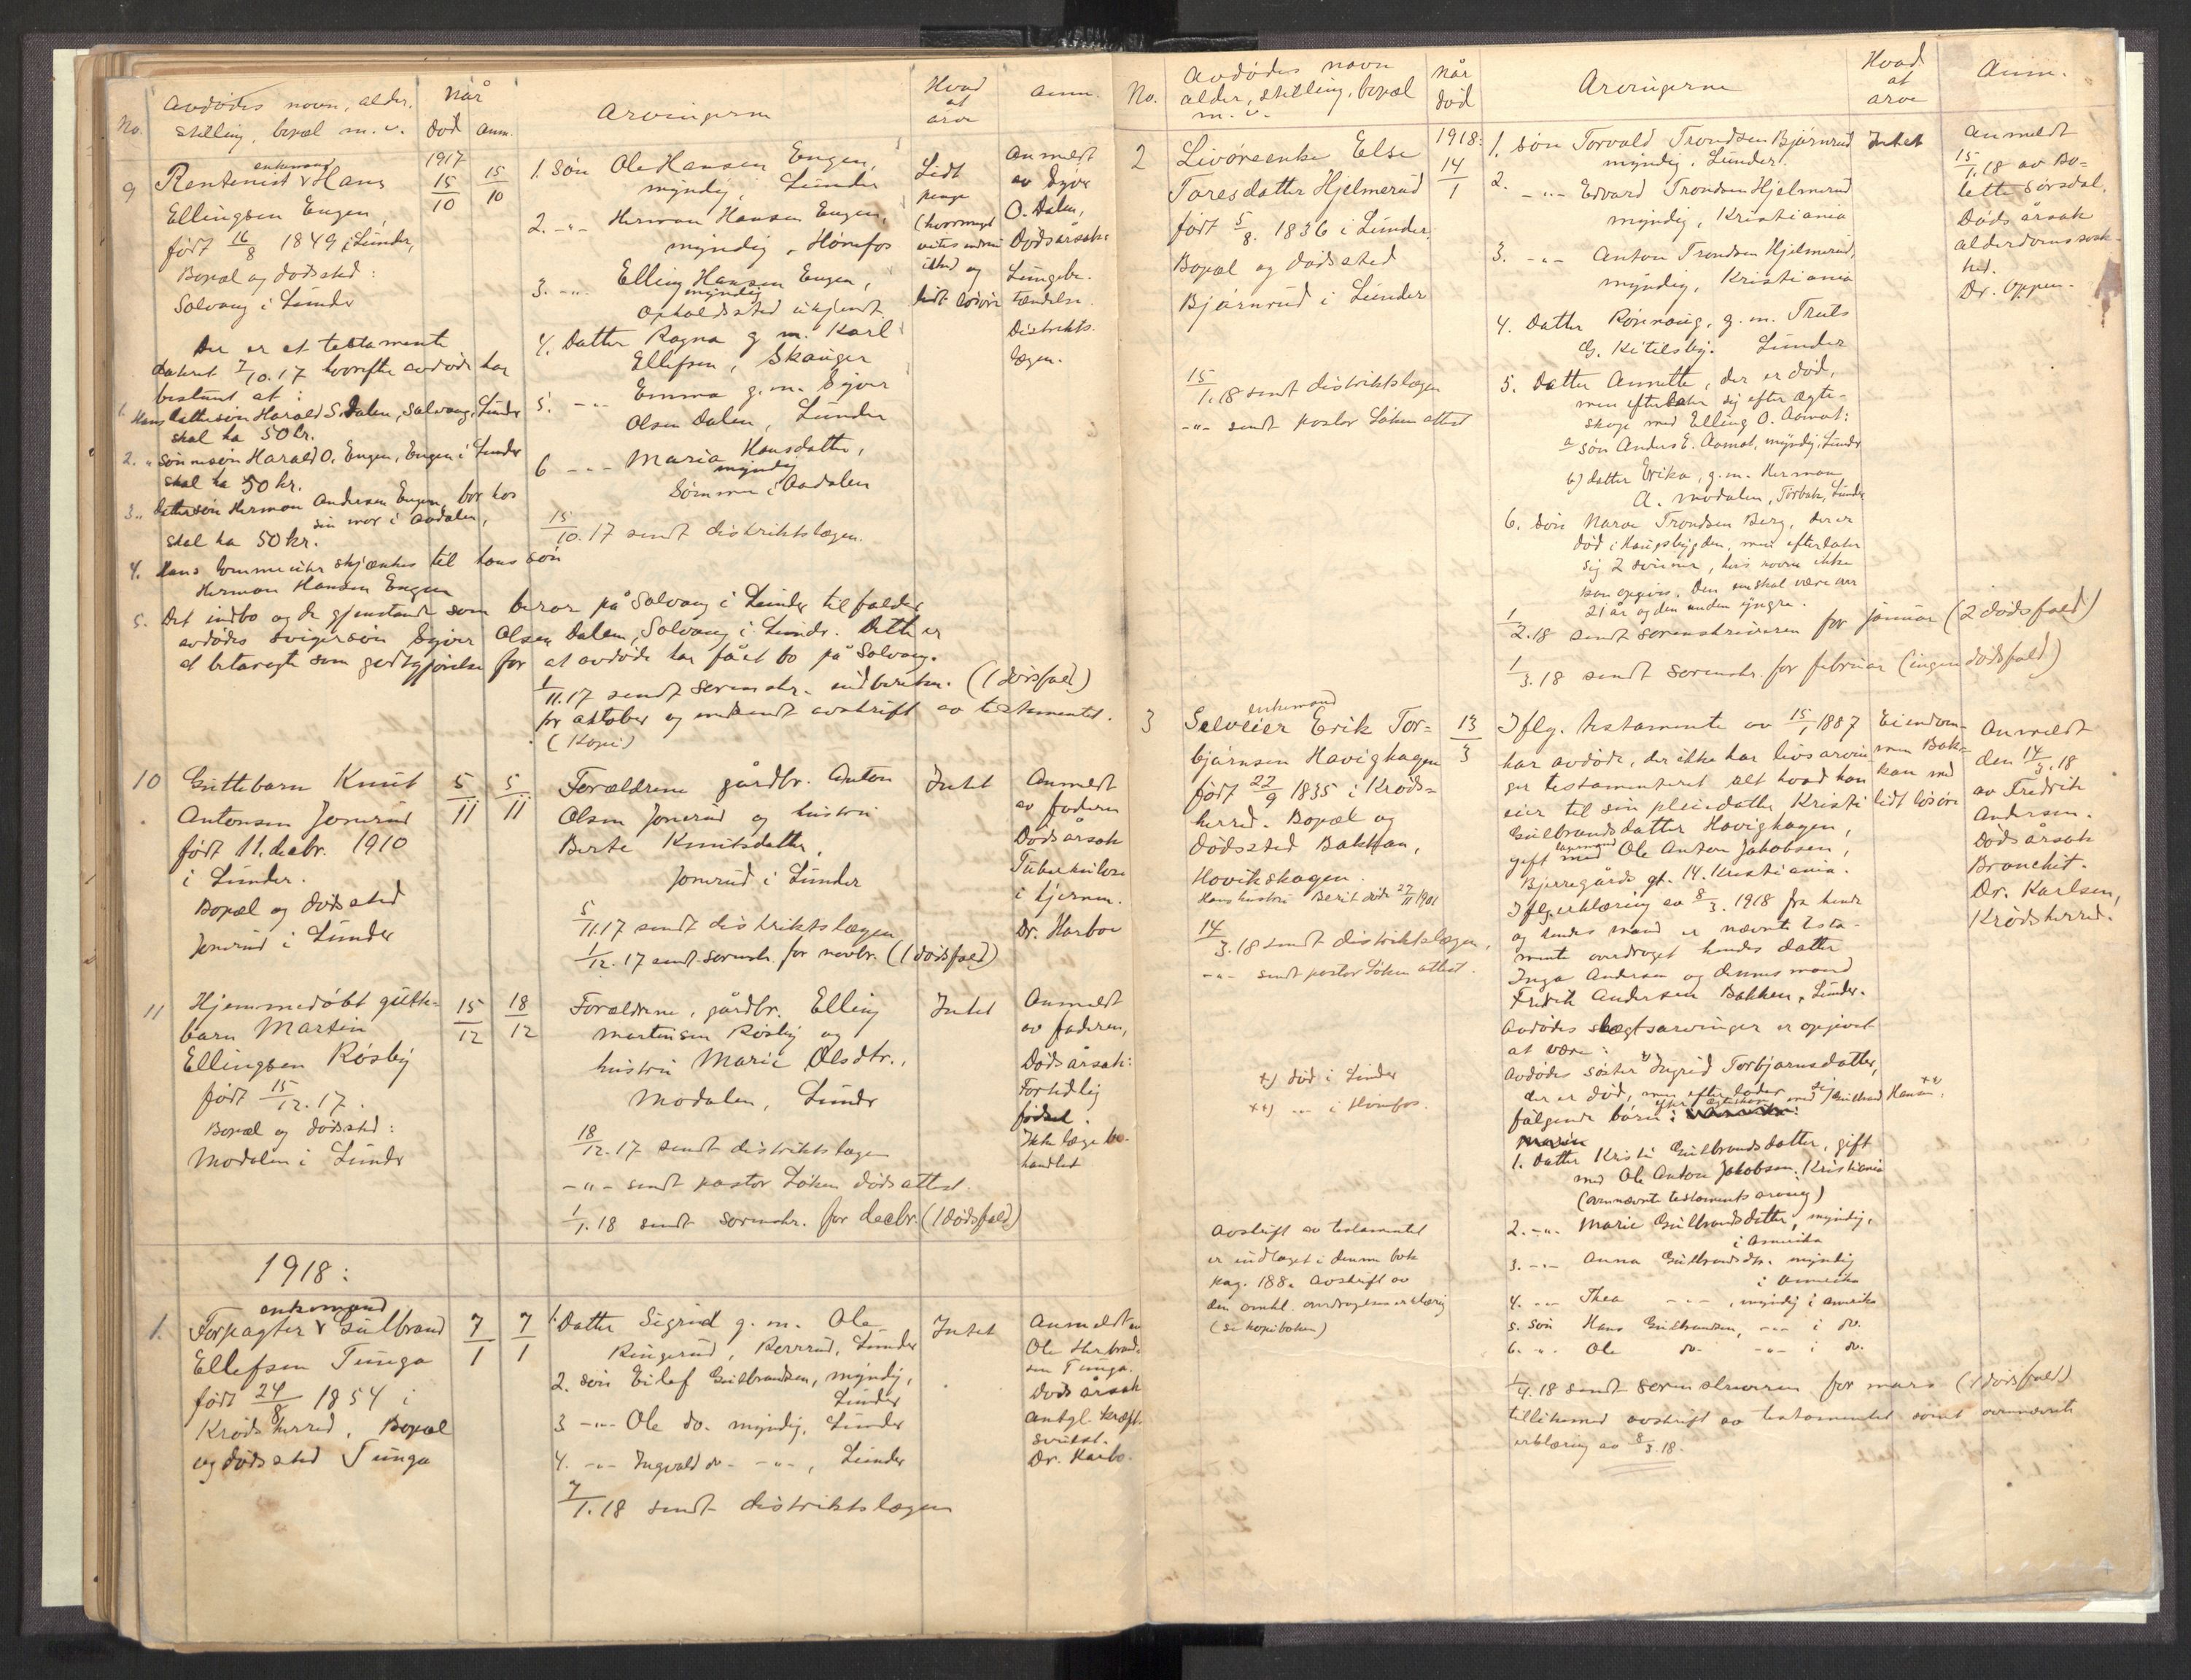 No.
Avdödes novn, alder,
stilling, bopæl m. v.
Når
död anm.
Arvingerne
Hvad
at
arve
Anm.
9
enkemand
Rentenist v Hans
Ellingsen Engen,
født 16/8 1849 i Lunder,
Bopæl og dødssted:
Solvang i Lunder
1917
15/10
15/10
Der er et testamente
datert 7/10.17 hvorefter avdøde har
bestemt at:
1. Hans dattersøn Harald S. Dalen, Solvang, Lunder
skal ha 50 kr.
2. " sønnesøn Harald O. Engen, Engen i Lunder
skal ha 50 kr.
3. " dattersøn Herman Andersen Engen, bor hos
sin mor i Aadalen,
skal ha 50 kr.
4. Hans lommeuhr skjænkes til hans søn
Herman Hansen Engen
5. Det indbo og de gjenstande som beror på Solvang i Lunder tilfalder
avdødes svigersøn Syver Olsen Dalen, Solvang i Lunder. Dette er
at betaragte som godtgjørelse for at avdøde har fået bo på Solvang.
1. Søn Ole Hansen Engen,
myndig, Lunder
2. -"- Herman Hansen Engen,
myndig, Hønefos
3. -"- Elling Hansen Engen,
myndig
opholdssted ukjendt
4. Datter Ragna g. m. Karl
Ellefsen, Skauger
5. -"- Emma g. m. Syver
Olsen Dalen, Lunder
6 -"- Maria Hansdatter,
myndig
Sømmen i Aadalen
15/10.17 sendt distriktslægen.
1/11.17 sendt sorenskr. indberetn. (1 dødsfald)
for oktober og medsendt avskrift av testamentet.
(Kopi)
Lidt
penge
(hvormeget
vites endnu
ikke) og
lidt løsøre
Anmeldt
av Syver
O. Dalen,
Dødsårsak:
Lungebe-
tændelse.
Distrikts-
lægen.
10
Guttebarn Knut
Antonsen Jonsrud
født 11. decbr. 1910
i Lunder.
Bopæl og dødssted
Jonsrud i Lunder
5/11
5/11
Forældrene gårdbr. Anton
Olsen Jonsrud og hustru
Berte Knutsdatter,
Jonsrud i Lunder
5/11.17 sendt distriktslægen
1/12.17 sendt sorenskr. for novbr. (1 dødsfald)
Intet
Anmeldt
av faderen
Dødsårsak
Tuberkulose
i hjernen.
Dr. Harboe
11
Hjemmedøbt gutte-
barn Martin
Ellingsen Røsby
født 15/12.17.
Bopæl og dødssted:
Modalen i Lunder
15/12
18/12
Forældrene, gårdbr. Elling
Martinsen Røsby og
hustru Marie Olsdtr.,
Modalen, Lunder
18/12.17 sendt distriktslægen
-"- sendt pastor Løken dødsattest.
1/1.18 sendt sorenskr. for decbr. (1 dødsfald)
Intet
Anmeldt
av faderen,
Dødsårsak:
Fortidlig
fødsel.
Ikke læge be-
handlet
1918:
1.
enkemand
Forpagter v Gulbrand
Ellefsen Tunga
født 24/8 1854 i
Krødsherred, Bopæl
og dødssted Tunga
7/1
7/1
1. Datter Sigrid g. m. Ole
Ringerud, Lunder
2. søn Eilef Gulbrandsen, myndig,
Lunder
3 -"- Ole do. myndig, Lunder
4. -"- Ingvald do - -"-, Lunder
7/1.18 sendt distriktslægen
Intet
Anmeldt av
Ole Herbrand-
sen Tunga.
Dødsårsak
antgl. kræft-
svulst.
Dr. Harbo.
No.
Avdödes navn
alder, stilling, bopæl
m. v.
Når
död
Arvingerne
Hvad
at
arve
Anm.
2
Livøreenke Else
Toresdatter Hjelmerud
født 5/8. 1836 i Lunder,
Bopæl og dødssted
Bjørnrud i Lunder
1918:
14/1
15/1.18 sendt distriktslægen
-"- sendt pastor Løken attest
1. søn Torvald Trondsen Bjørnrud
myndig, Lunder.
2. -"- Edvard Trondsen Hjelmerud
myndig, Kristiania
3. -"- Anton Trondsen Hjelmerud,
myndig, Kristiania
4. Datter Rønnaug, g. m. Truls
G. Kitilsby. Lunder
5. Datter Annette, der er død,
men efterlater sig efter ægte-
skap med Elling O. Aamot:
a søn Anders E. Aamot, myndig, Lunder
b) datter Erika, g. m. Herman
A. Modalen, Lunder
6. søn Narve Trondsen Berg, der er
død i Haugsbygden, men efterlater
sig 2 sønner, hvis navne ikke
kan opgives. Den ene skal være over
21 år og den anden yngre.
1/2.18 sendt sorenskriveren for januar (2 dødsfald)
1/3.18 sendt sorenskr. for februar (ingen dødsfald)
Intet
Anmeldt
15/1.18 av Bo-
lette Sørsdal,
Dødsårsak
alderdomssvak-
hed.
Dr. Oppen.
3
enkemand
Selveier Erik Tor-
bjørnsen Havighagen
født 22/9 1835 i Krøds-
herred. Bopæl og
dødssted Bakken,
Hovikshagen.
Hans hustru Berit døde 27/11 1901
13/3
14/3.18 sendt distriktslægen,
-"- sendt pastor Løken attest.
x) død i Lunder
xx) -"- i Hønefos.
Avskrift av testamentet
er indtaget i denne bok
pag. 188. Avskrift av
den omhl. overdragelseserklæring
(se kopiboken)
Iflg. testamente av 15/1 1887
har avdøde, der ikke har livsarvin-
ger testamenteret alt hvad han
eier til sin pleiedatter Kristi
Gulbrandsdatter Hovighagen,
gift med Ole Anton Jakobsen,
Bjerregårds gt. 14. Kristiania.
Iflg. erklæring av 8/3. 1918 fra hende
og hendes mand er nævnte testa-
mente overdraget hendes datter
Inga Andersen og dennes mand
Fredrik Andersen Bakken, Lunder.
Avdødes slægtsarvinger er opgivet
at være:
Avdødes søster x) Ingrid Torbjørnsdatter,
der er død, men efterlader sig
følgende børn: efter ægteskap med Gulbrand Hansen xx),
1. Datter Kristi Gulbrandsdatter, gift
med Ole Anton Jakobsen, Kristiania
(ovennævnte testamentsarving)
2. -"- Marie Gulbrandsdatter, myndig,
i Amerika
3. -"- Anna Gulbrandsdtr. myndig
i Amerika
4. -"- Thea -"-, myndig i Amerika
5. søn Hans Gulbrandsen, -"- i do.
6. -"- Ole do. -"- i do.
1/4.18 sendt sorenskriveren for mars (1 dødsfald)
tillikemed avskrift av testamentet samt ovennævnte
erklæring av 8/3.18.
Eiendom-
men Bak-
kan med
lidt løsøre
Anmeldt
den 14/3.18
av Fredrik
Andersen.
Dødsårsak
Bronchit.
Dr. Karlsen,
Krødsherred.